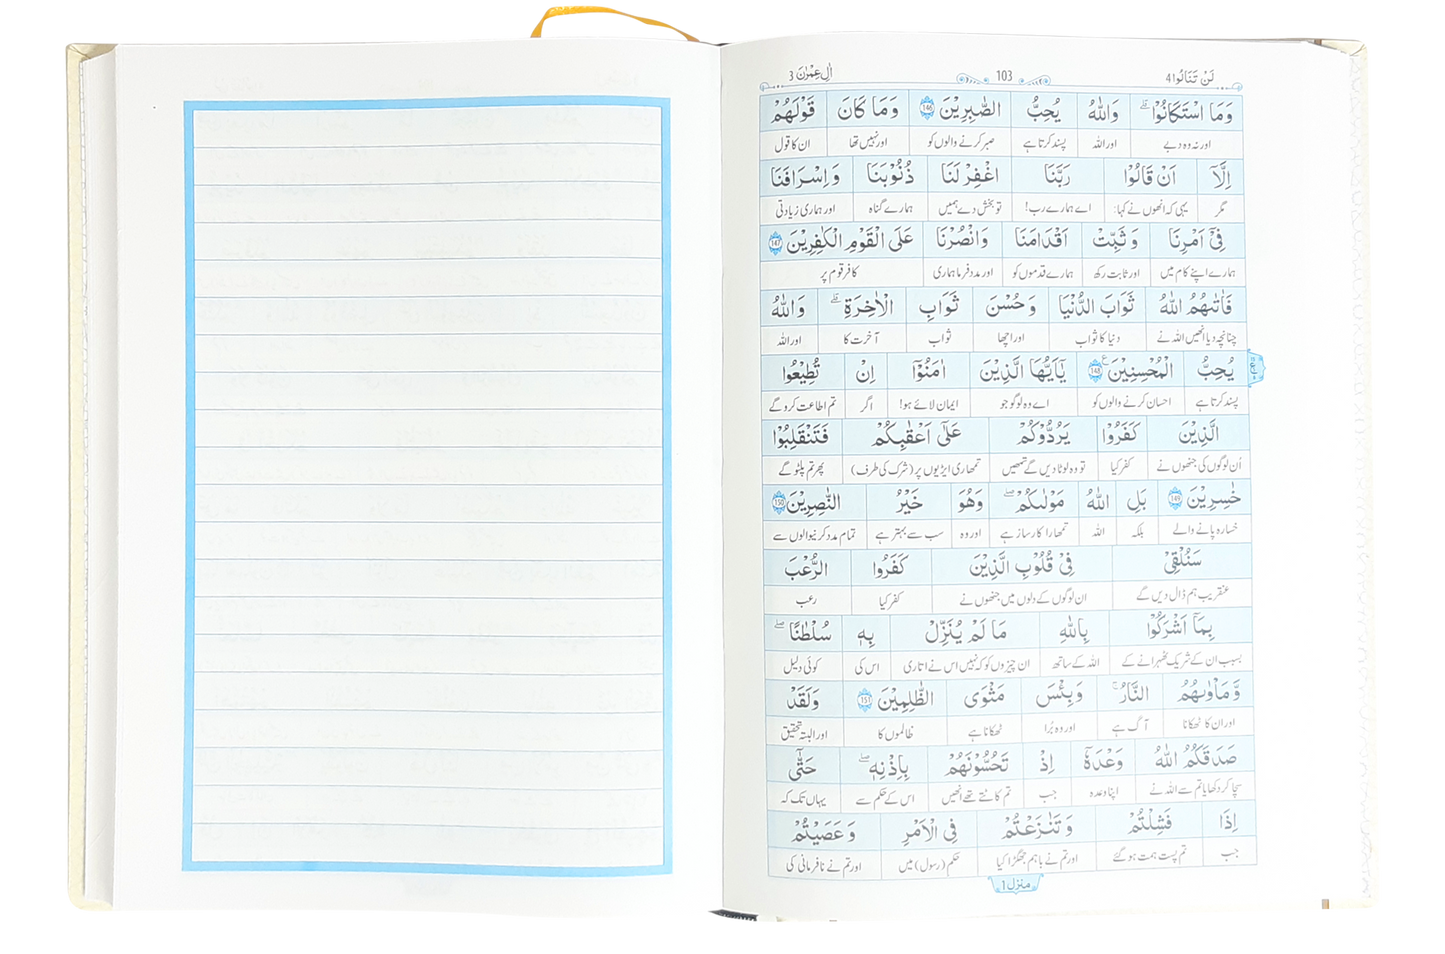 لَنْ تَنَالُوا 4 103 اٰلِ عِمْرٰنَ 3
وَمَا اسْتَكَانُوْا ۗ وَاللّٰهُ يُحِبُّ الصّٰبِرِيْنَ 146 وَمَا كَانَ قَوْلَهُمْ
اور نہ وہ دبے اور اللہ پسند کرتا ہے صبر کرنے والوں کو اور نہیں تھا ان کا قول
اِلَّآ اَنْ قَالُوْا رَبَّنَا اغْفِرْ لَنَا ذُنُوْبَنَا وَاِسْرَافَنَا
مگر یہی کہ انھوں نے کہا: اے ہمارے رب! تو بخش دے ہمیں ہمارے گناہ اور ہماری زیادتی
فِيْٓ اَمْرِنَا وَثَبِّتْ اَقْدَامَنَا وَانْصُرْنَا عَلَى الْقَوْمِ الْكٰفِرِيْنَ 147
ہمارے اپنے کام میں اور ثابت رکھ ہمارے قدموں کو اور مدد فرما ہماری کافر قوم پر
فَاٰتٰىهُمُ اللّٰهُ ثَوَابَ الدُّنْيَا وَحُسْنَ ثَوَابِ الْاٰخِرَةِ ۗ وَاللّٰهُ
چنانچہ دیا انھیں اللہ نے دنیا کا ثواب اور اچھا ثواب آخرت کا اور اللہ
يُحِبُّ الْمُحْسِنِيْنَ 148 يٰٓاَيُّهَا الَّذِيْنَ اٰمَنُوْٓا اِنْ تُطِيْعُوا
پسند کرتا ہے احسان کرنے والوں کو اے وہ لوگو جو ایمان لائے ہو! اگر تم اطاعت کرو گے
الَّذِيْنَ كَفَرُوْا يَرُدُّوْكُمْ عَلٰٓى اَعْقٰبِكُمْ فَتَنْقَلِبُوْا
اُن لوگوں کی جنھوں نے کفر کیا تو وہ لوٹا دیں گے تمھیں تمھاری ایڑیوں پر (شرک کی طرف) پھر تم پلٹو گے
خٰسِرِيْنَ 149 بَلِ اللّٰهُ مَوْلٰىكُمْ ۚ وَهُوَ خَيْرُ النّٰصِرِيْنَ 150
خسارہ پانے والے بلکہ اللہ تمھارا کارساز ہے اور وہ سب سے بہتر ہے تمام مدد کرنیوالوں سے
سَنُلْقِيْ فِيْ قُلُوْبِ الَّذِيْنَ كَفَرُوا الرُّعْبَ
عنقریب ہم ڈال دیں گے ان لوگوں کے دلوں میں جنھوں نے کفر کیا رعب
بِمَآ اَشْرَكُوْا بِاللّٰهِ مَا لَمْ يُنَزِّلْ بِهٖ سُلْطٰنًا ۚ
بسبب ان کے شریک ٹھہرانے کے اللہ کے ساتھ ان چیزوں کو کہ نہیں اس نے اتاری اس کی کوئی دلیل
وَمَاْوٰىهُمُ النَّارُ ۚ وَبِئْسَ مَثْوَى الظّٰلِمِيْنَ 151 وَلَقَدْ
اور ان کا ٹھکانا آگ ہے اور وہ بُرا ٹھکانا ہے ظالموں کا اور البتہ تحقیق
صَدَقَكُمُ اللّٰهُ وَعْدَهٗٓ اِذْ تَحُسُّوْنَهُمْ بِاِذْنِهٖ ۚ حَتّٰٓى
سچا کر دکھایا تم سے اللہ نے اپنا وعدہ جب تم کاٹتے تھے انھیں اس کے حکم سے یہاں تک کہ
اِذَا فَشِلْتُمْ وَتَنٰزَعْتُمْ فِي الْاَمْرِ وَعَصَيْتُمْ
جب تم پست ہمت ہو گئے اور تم نے باہم جھگڑا کیا حکم (رسول) میں اور تم نے نافرمانی کی
منزل 1